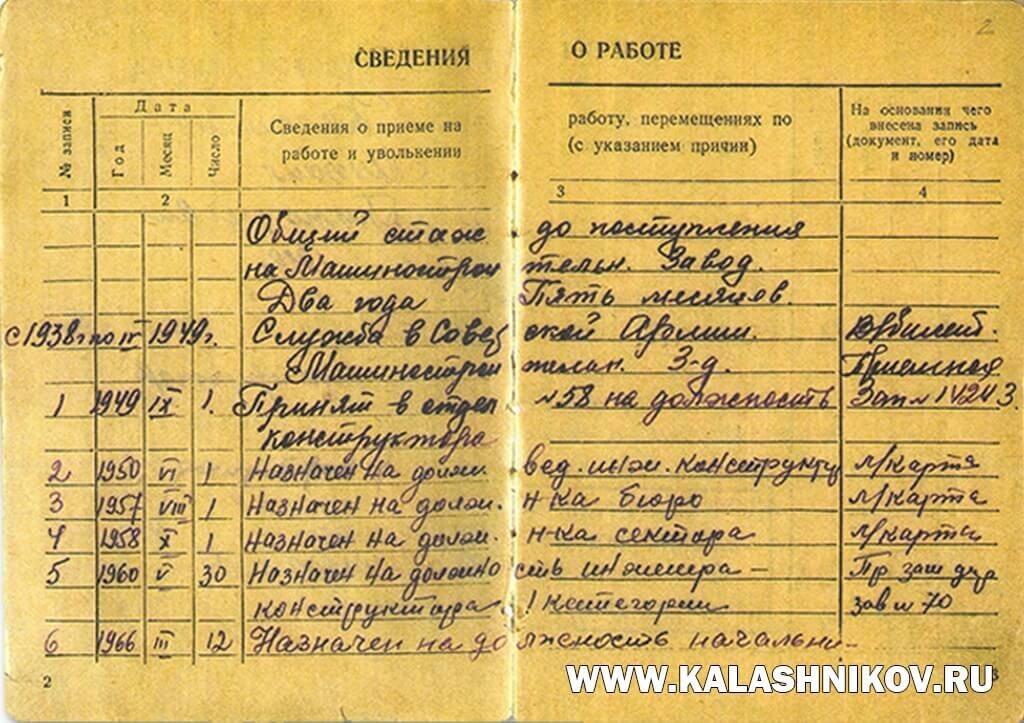 2
СВЕДЕНИЯ О РАБОТЕ
№ записи
Дата
Год
Месяц
Число
Сведения о приеме на работу, перемещениях по
работе и увольнении (с указанием причин)
На основании чего
внесена запись
(документ, его дата
и номер)
1 2 3 4
Общий стаж до поступления
на Машиностроительн. Завод.
Два года Пять месяцев.
с 1938г по IV 1949г. Служба в Советской Армии. В/билет.
Машиностроительн. З-д. Приемная
1 1949 IX 1. Принят в отдел №58 на должность Зап № 14243.
конструктора
2 1950 VI 1 Назначен на должн. вед. инж. конструктор л/карта
3 1957 VIII 1 Назначен на должн. н-ка бюро л/карта
4 1958 X 1 Назначен на должн. н-ка сектора л/карта
5 1960 V 30 Назначен на должность инженера – Пр зам дир
конструктора 1 категории зав № 70
6 1966 III 12 Назначен на должность начальни-
2
3
WWW.KALASHNIKOV.RU